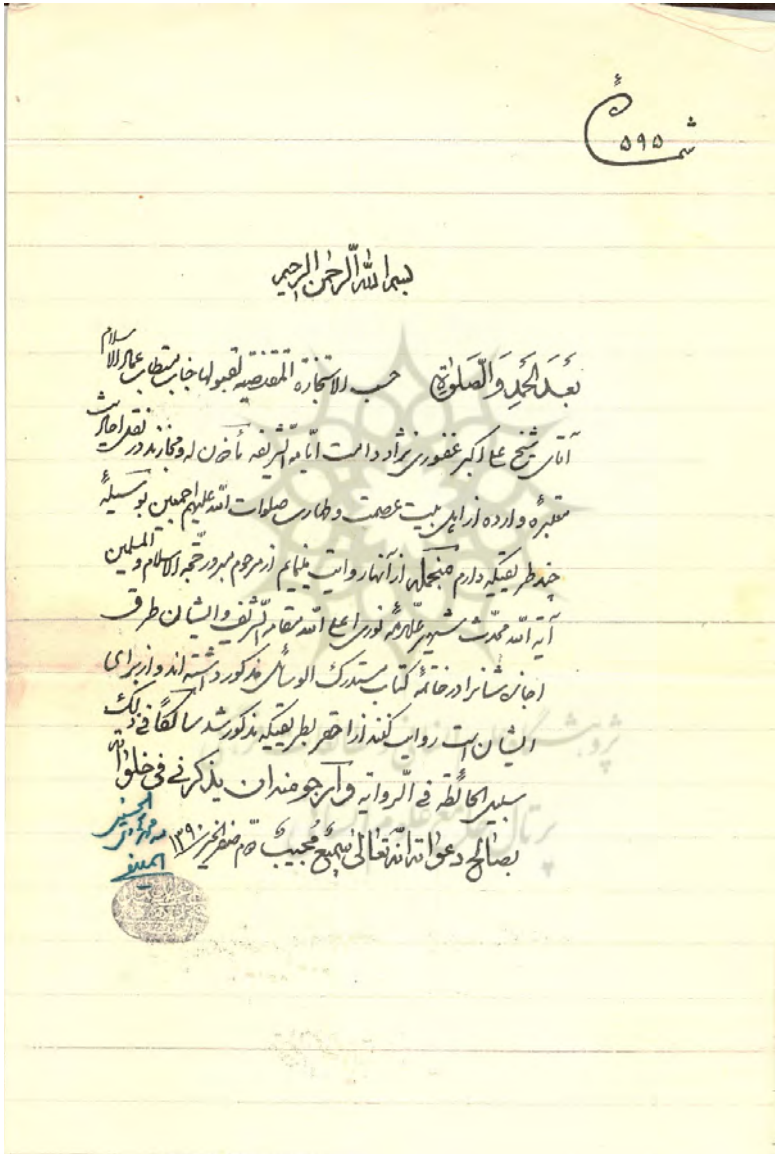 شمارهٔ ۵۹۵
بسم الله الرحمن الرحیم
بَعدَ الحَمدِ وَالصَّلوٰةِ حسب الاستجازة المقتضیه لقبولها جناب مستطاب عماد الاسلام
آقای شیخ علی اکبر غفوری نژاد دامت ایامه الشریفه مأذون له و مجازند در نقل احادیث
معتبرهٔ وارده از اهل بیت عصمت و طهارت صلوات الله علیهم اجمعین بوسیلهٔ
چند طریقیکه دارم منجمله از آنها روایت مینمایم از مرحوم مبرور ثقة الاسلام و المسلمین
آیة الله محدّث شهیر علّامهٔ نوری اعلی الله مقامه الشریف و ایشان طرق
اجازهٔ شانرا در خاتمهٔ کتاب مستدرک الوسائل مذکور داشته اند و از برای
ایشان است روایت کنند از احقر بطریقیکه مذکور شد سالکاً فی ذلک
سبیل الحائطه فی الروایه و آرجو منه ان یذکرنی فی خلواته
بصالح دعواته انّه تعالی سَمیعٌ مُجیبٌ صفر الخیر ۱۳۹۰
الحسینی
پژوهشگاه علوم انسانی و مطالعات فرهنگی
پرتال جامع علوم انسانی